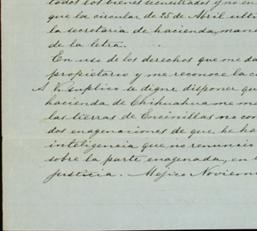 todos los bienes secuestrados y no en
que la circular de 25 de Abril ulti
la secretaria de hacienda, man
de la letra.
En uso de los derechos que me da
propietario y me reconoce la c
A V. suplico se digne disponer qu
hacienda de Chihuahua me m
las tierras de Encinillas no com
dos enagenaciones de que he ha
inteligencia que no renuncio
sobre la parte enagenada, en
justicia. Mejico Noviem